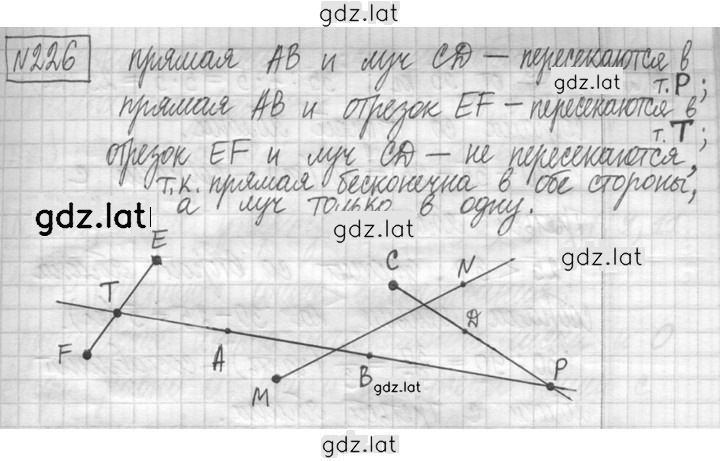 gdz.lat
№226 прямая AB и луч CD — пересекаются в
gdz.lat
т.P;
прямая AB и отрезок EF — пересекаются в
т.T;
отрезок EF и луч CD — не пересекаются,
т.к. прямая бесконечна в обе стороны,
а луч только в одну.
gdz.lat
gdz.lat
gdz.lat
E
C
N
T
D
F
A
B
P
M
gdz.lat
gdz.lat